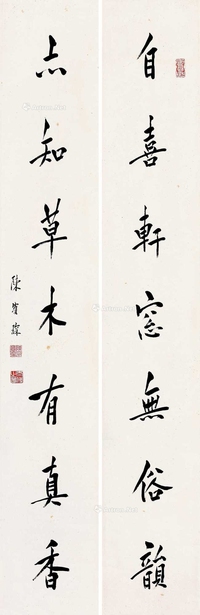 自喜軒窓無俗韻
亦知草木有真香
陳曾壽